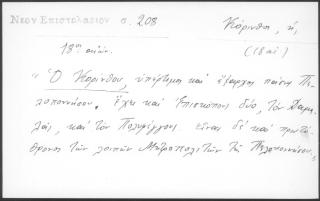 Νεον Επιστολαριον σ. 208
Κόρινθος, ἡ,
18ος αἰών.
(18 αἰ)
"Ὁ Κορίνθου, ὑπέρτιμος καὶ ἔξαρχος πάσης Πε-
λοποννήσου. Ἔχει καὶ Ἐπισκόπους δύο, τὸν Δαμα-
λῶν, καὶ τὸν Πολυφέγγους εἶναι δὲ καὶ πρωτό-
θρονος τῶν λοιπῶν Μητροπολιτῶν τῆς Πελοποννήσου,